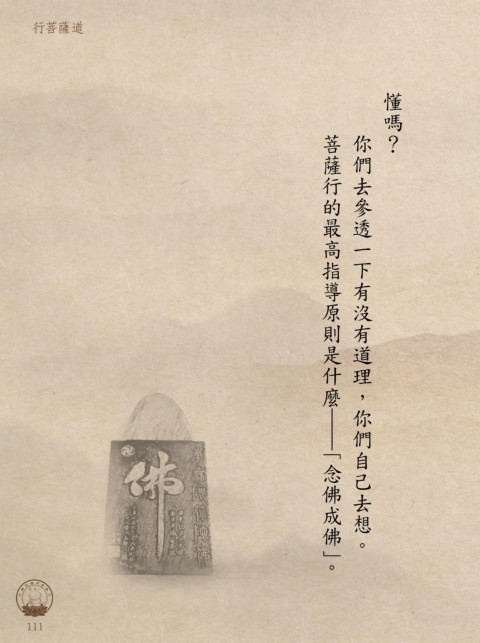 行菩薩道
懂嗎？
你們去參透一下有沒有道理，你們自己去想。
菩薩行的最高指導原則是什麼——「念佛成佛」。
佛
111